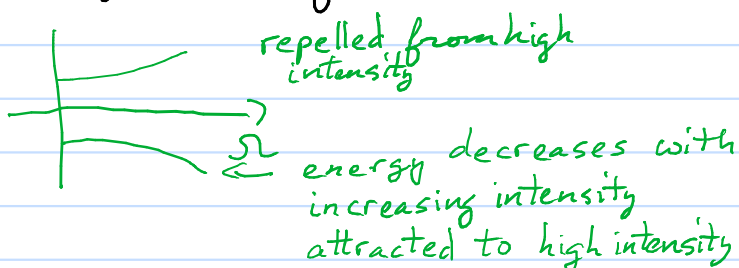 repelled from high
intensity
Ω
energy decreases with
increasing intensity
attracted to high intensity